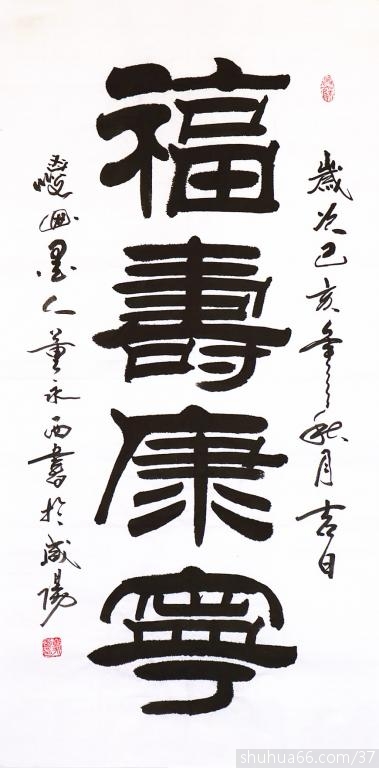 歲次己亥年之秋月吉日
福壽康寧
墨人董永西書於咸陽
shuhua66.com/37